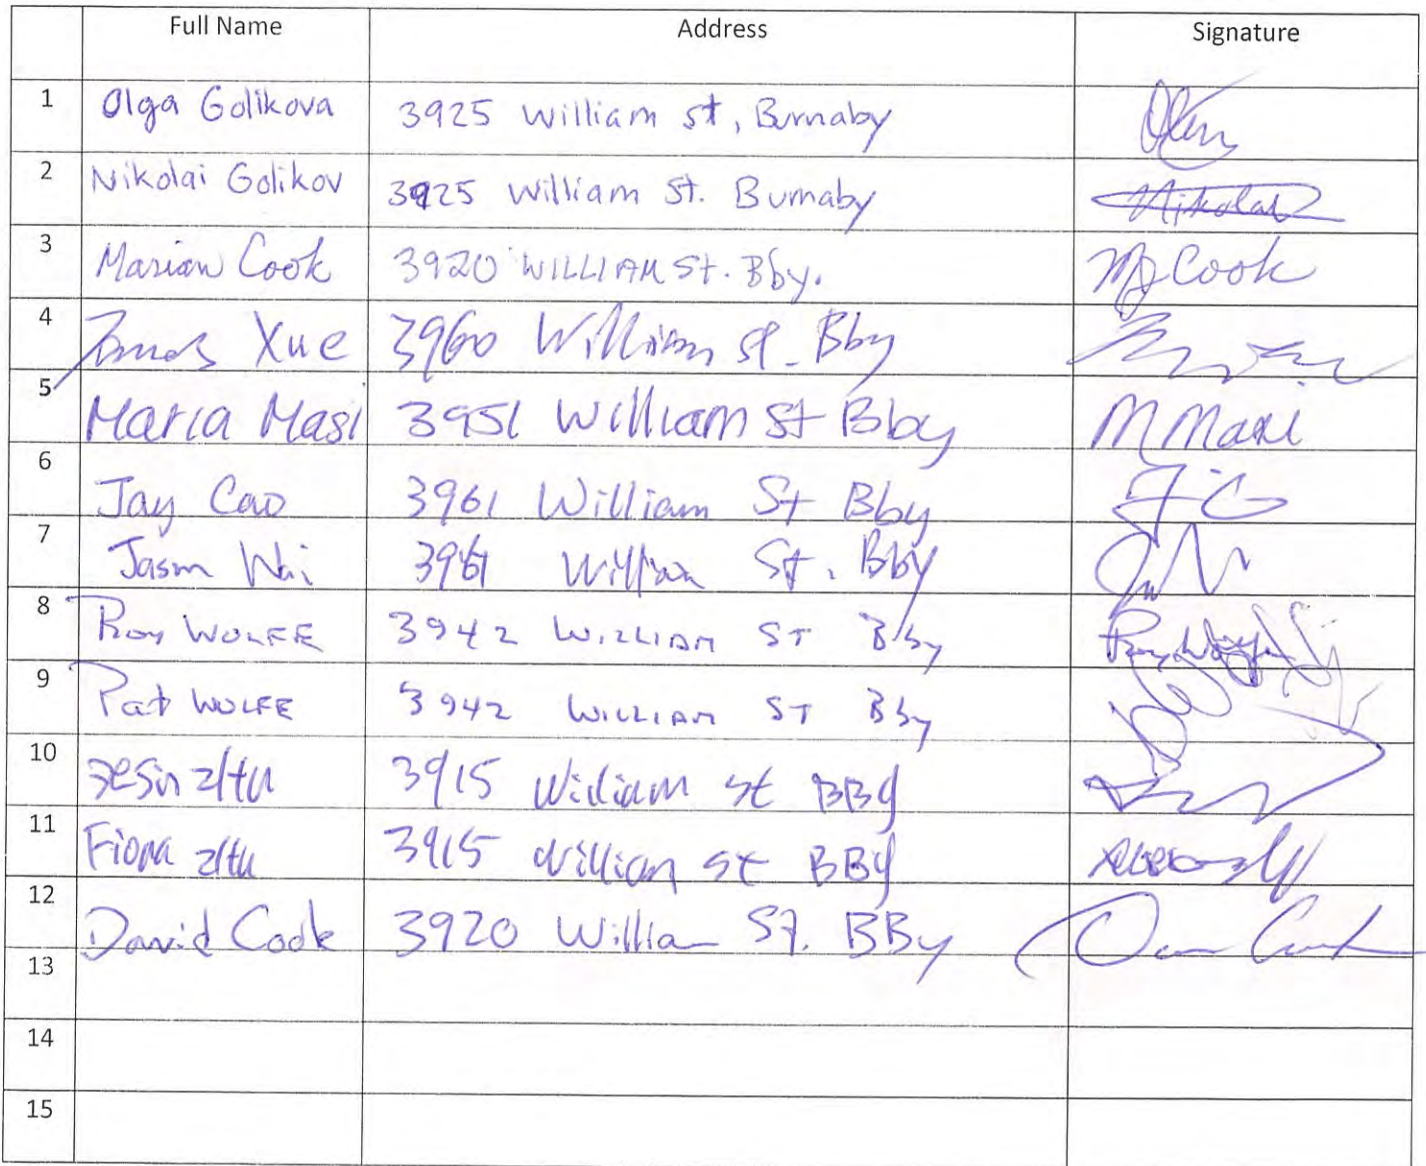 Full Name Address Signature
1 Olga Golikova 3925 William st, Burnaby
2 Nikolai Golikov 3925 William St. Burnaby Nikolai
3 Marian Cook 3920 WILLIAM St. Bby. MJ Cook
4 Xue 3960 William st. Bby
5 Maria Masi 3951 William St Bby M Masi
6 Jay Cao 3961 William St Bby
7 Jason Wai 3961 William St. Bby
8 Roy WOLFE 3942 WILLIAM ST Bby
9 Pat WOLFE 3942 WILLIAM ST Bby
10 3915 William st BBy
11 Fiona 3915 William st BBy
12 David Cook 3920 William St. BBy
13
14
15